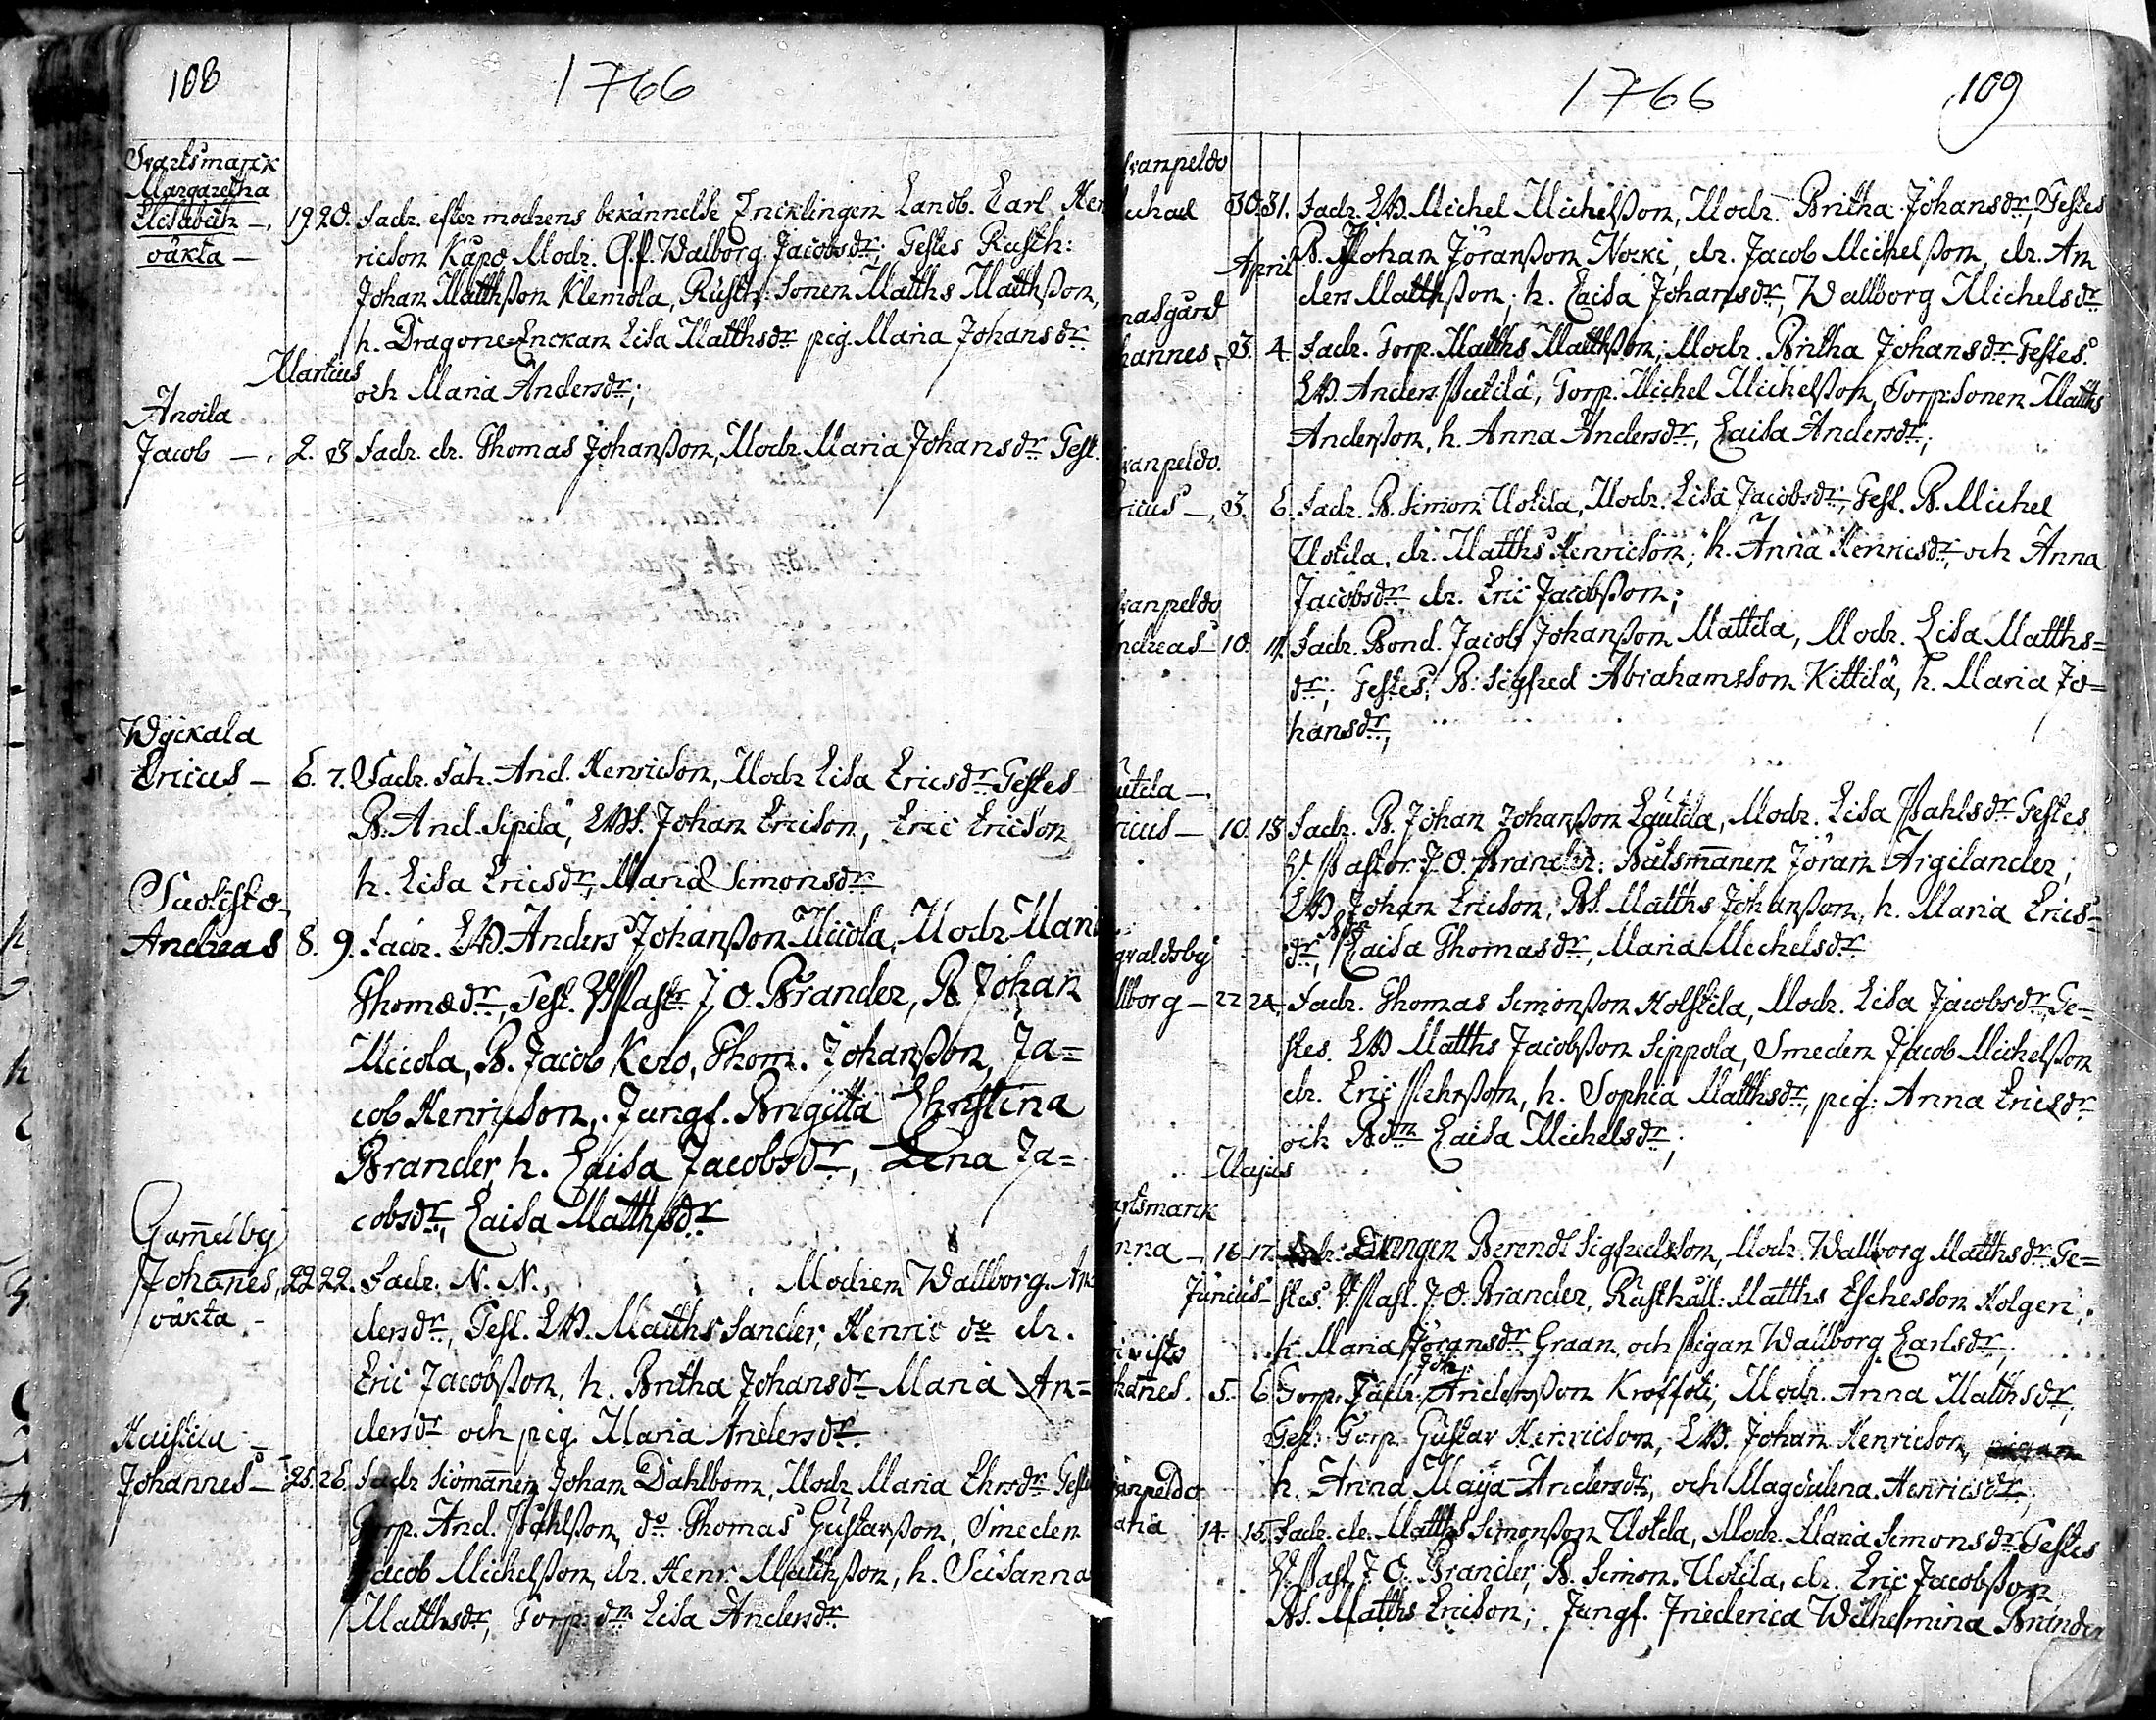 108
1766
Svartsmarck
Margaretha
Elisabeth —, 19. 20. Fadr. efter modrens bekännelse Encklingen Landb. Carl Hen
oäkta —
ricson Kåpo Modr. Q.p. Walborg Jacobsdr; Testes Rusth:
Johan Matthsson Klemola, Rusth: Sonen Matths Matthsson,
h. Dragone-Enckan Lisa Matthsdr pig. Maria Johansdr
Martius
och Maria Andersdr;
Anoila
Jacob —. 2. 3 Fadr. dr. Thomas Johansson, Modr. Maria Johansdr Test.
Wyckala
Ericus — 6. 7. Fadr. Sah. And. Henricson, Modr Lisa Ericsdr Testes
B. And. Sipilä, Johan Ericson, Eric Ericson
h. Lisa Ericsdr, Maria Simonsdr
Suolisto
Andreas 8. 9. Fadr. LB. Anders Johansson Uciola, Modr Mari
Thomædr, Test. VPastr. J. O. Brander, B. Johan
Uciola, B. Jacob Kero, Thom. Johansson, Ja=
cob Henricson, Jungf. Brigitta Christina
Brander, h. Caisa Jacobsdr, Lena Ja=
cobsdr, Caisa Matthsdr
Gam̄elby
Johan̄es, 22 22. Fadr. N. N., Modren Wallborg. An
oäkta -
dersdr, Test. LB. Matths Sander, Henric do dr.
Eric Jacobsson, h. Britha Johansdr Maria An=
dersdr och pig. Maria Andersdr.
Haistila —
Johannes — 25. 26. Fadr Siöman̄en Johan Dahlbom, Modr Maria Ehrsdr Teste
Torp. And. Påhlsson, do Thomas Gustavsson, Smeden
Jacob Michelsson, dr. Henr. Matthsson, h. Susanna
Matthsdr, Torp: dr. Lisa Andersdr
1766
109
vanpeldo
ichael 30. 31. Fadr. LB. Michel Michelsson, Modr. Britha Johansdr, Testes
April B. Johan Jöransson Nocki, dr. Jacob Michelsson, dr. An
ders Matthsson; h. Caisa Johansdr, Wallborg Michelsdr
nasgård
hannes, 3. 4 Fadr. Torp. Matths Matthsson; Modr. Britha Johansdr Testes.
LB. Anders Putila, Torp. Michel Michelsson, Torp: Sonen Matths
Andersson, h. Anna Andersdr, Caisa Andersdr;
vanpeldo.
ricus —, 3. 6. Fadr. B. Simon Uotila, Modr. Lisa Jacobsdr, Test. B. Michel
Uotila, dr. Matths Henricson, h. Anna Henricsdr, och Anna
Jacobsdr dr. Eric Jacobsson;
vanpeldo
ndreas — 10. 11. Fadr. Bond. Jacob Johansson Mattila, Modr. Lisa Matths=
dr; Testes, B: Sigfred Abrahamsson Kittilä, h. Maria Jo=
hansdr,
utila —
ricus — 10. 13 Fadr. B. Johan Johansson Lautila, Modr. Lisa Påhlsdr Testes
V. Pastor J. O. Brander. Båtsman̄en Jöran Argilander,
LB. Johan Ericson, BS. Matths Johansson, h. Maria Erics=
dr, Caisa Thomasdr, Maria Michelsdr
gvaldsby
llborg — 22 24. Fadr. Thomas Simonsson Holstila, Modr. Lisa Jacobsdr, Te=
stes. LB Matths Jacobsson Sippola, Smeden Jacob Michelsson
dr. Eric Pehrsson, h. Sophia Matthsdr, pig: Anna Ericsdr
och Bdr Caisa Michelsdr;
Majus
artsmarck
nna —, 16 17. Drengen Berendt Sigfredsson, Modr. Wallborg Matthsdr Te=
Junius stes. V. Past. J. O. Brander, Rusthåll: Matths Eschesson Holgen,
h. Maria Jöransdr Graan, och Pigan Wallborg Carlsdr,
ivisto
Joh.
han̄es. 5. 6 Torp. Fadr: Andersson Kroffoti, Modr. Anna Matthsdr,
Test: Torp Gustav Henricson, LB. Johan Henricson,
h. Anna Maija Andersdr, och Magdalena Henricsdr,
anpeldo.
aria 14. 15. Fadr. dr. Matths Simonsson Uotila, Modr. Maria Simonsdr Testes
V. Past J. O. Brander, B. Simon Uotila, dr. Eric Jacobsson,
BS. Matths Ericson; Jungf. Friederica Wilhelmina Brander